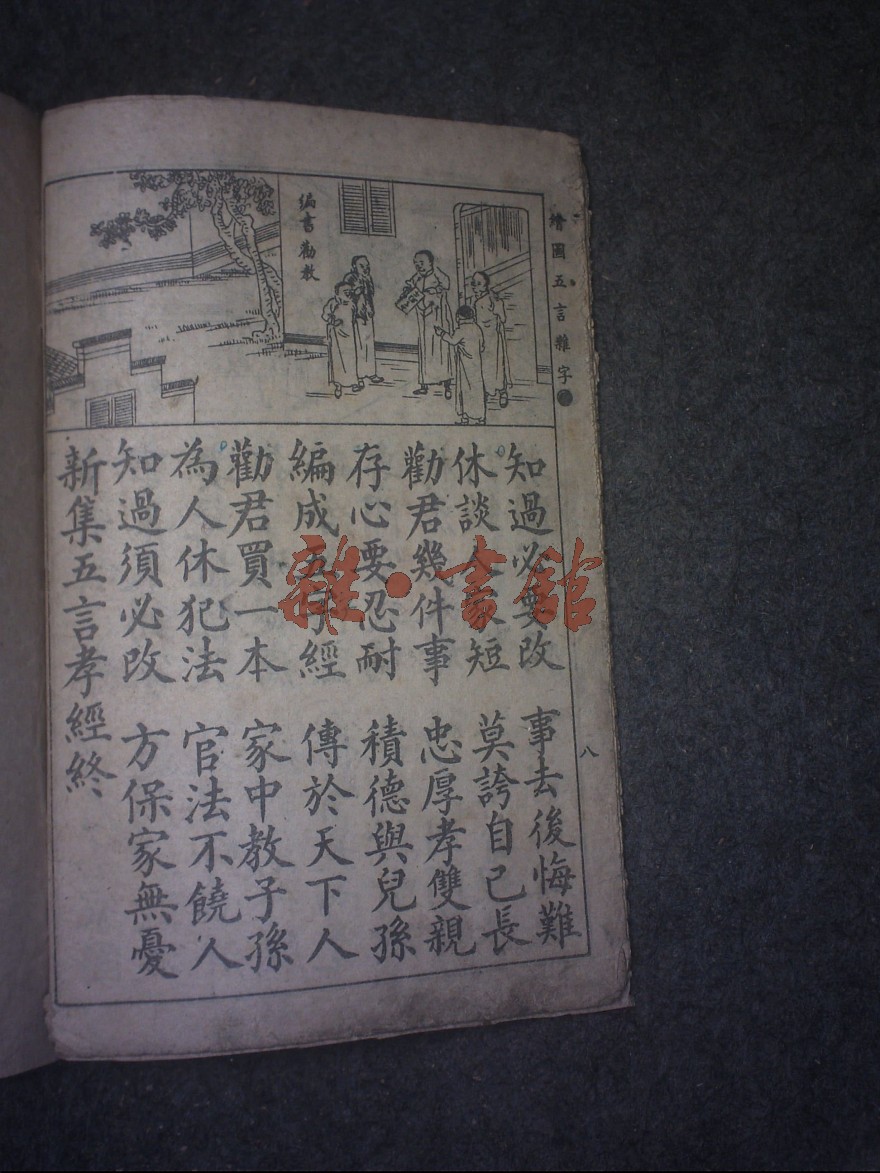 繪圖五言雜字
八
編書勸教
知過必要改 事去後悔難
休談人家短 莫誇自己長
勸君幾件事 忠厚孝雙親
存心要忍耐 積德與兒孫
編成五字經 傳於天下人
勸君買一本 家中教子孫
為人休犯法 官法不饒人
知過須必改 方保家無憂
新集五言孝經終
雜·書館